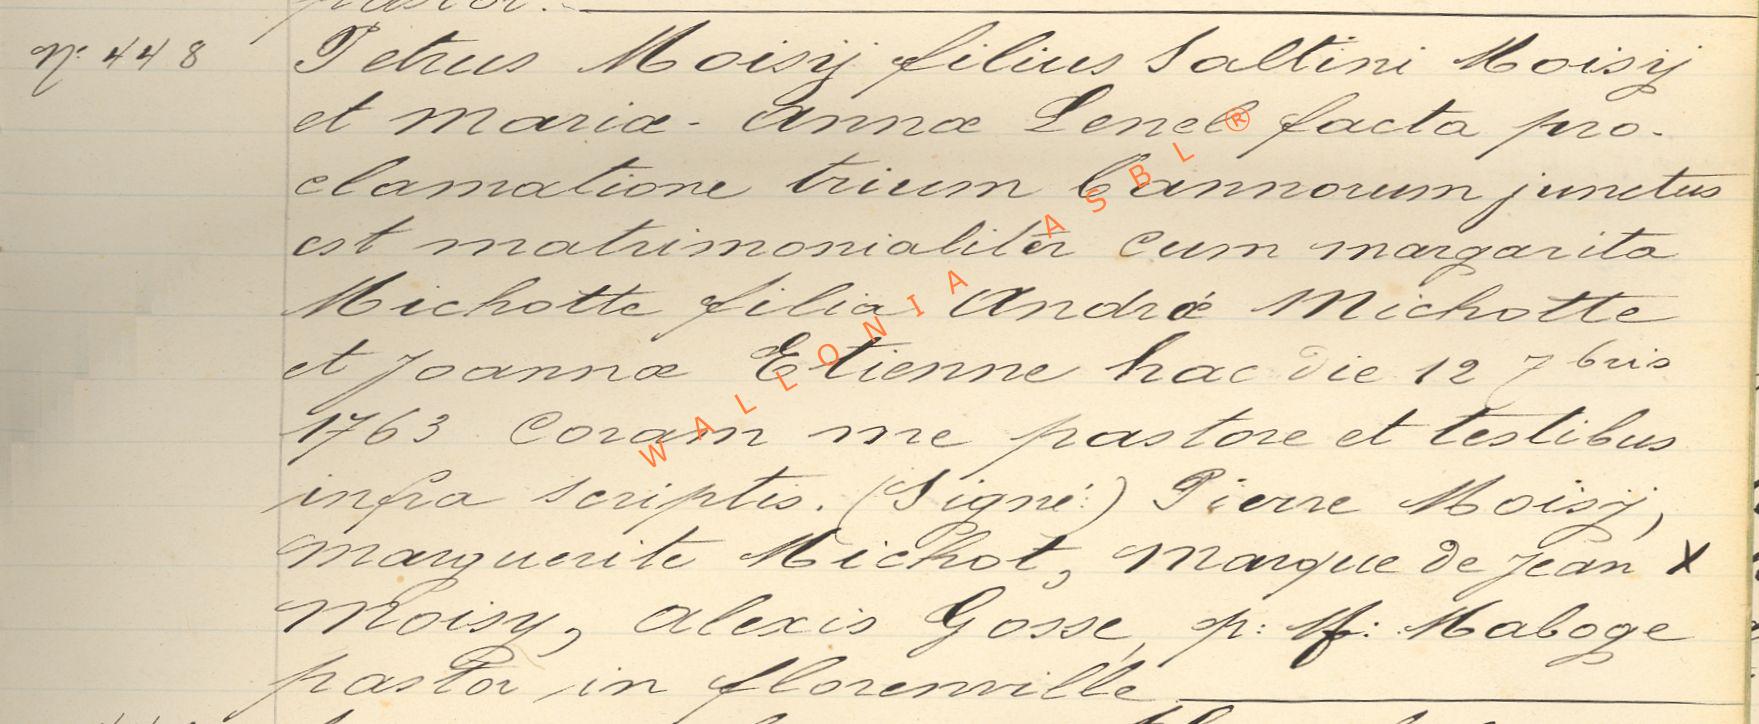 pastor.
N: 448 Petrus Moisÿ filius Saltini Moisÿ
et mariæ - annæ Lenel facta pro-
clamatione trium bannorum junctus
est matrimonialiter cum margarita
Michotte filia Andræ Michotte
et Joannæ Etienne hac die 12 7bris
1763 coram me pastore et testibus
infra scriptis. (Signé:) Pierre Moisÿ,
marguerite Michot, marque de Jean X
Moisy, alexis Gosse, p: M: Maboge
pastor in florenville
WALLONIA ASBL ®